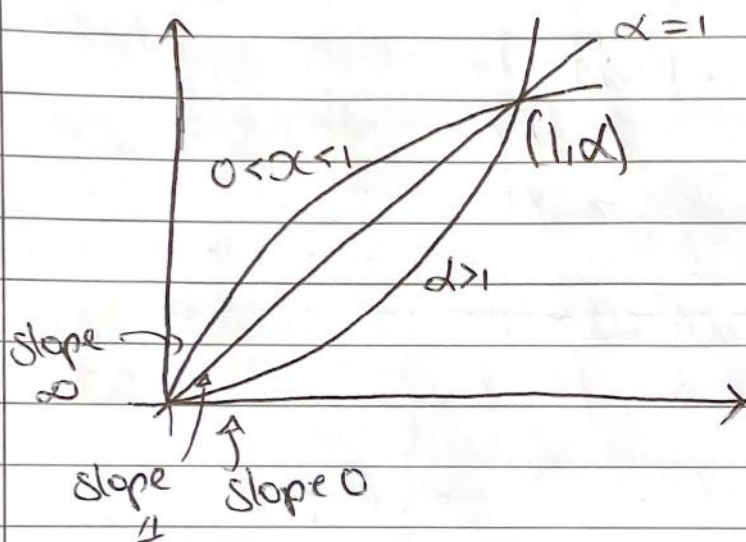 α = 1
0 < x < 1
(1, α)
α > 1
slope
∞
slope
1
slope 0